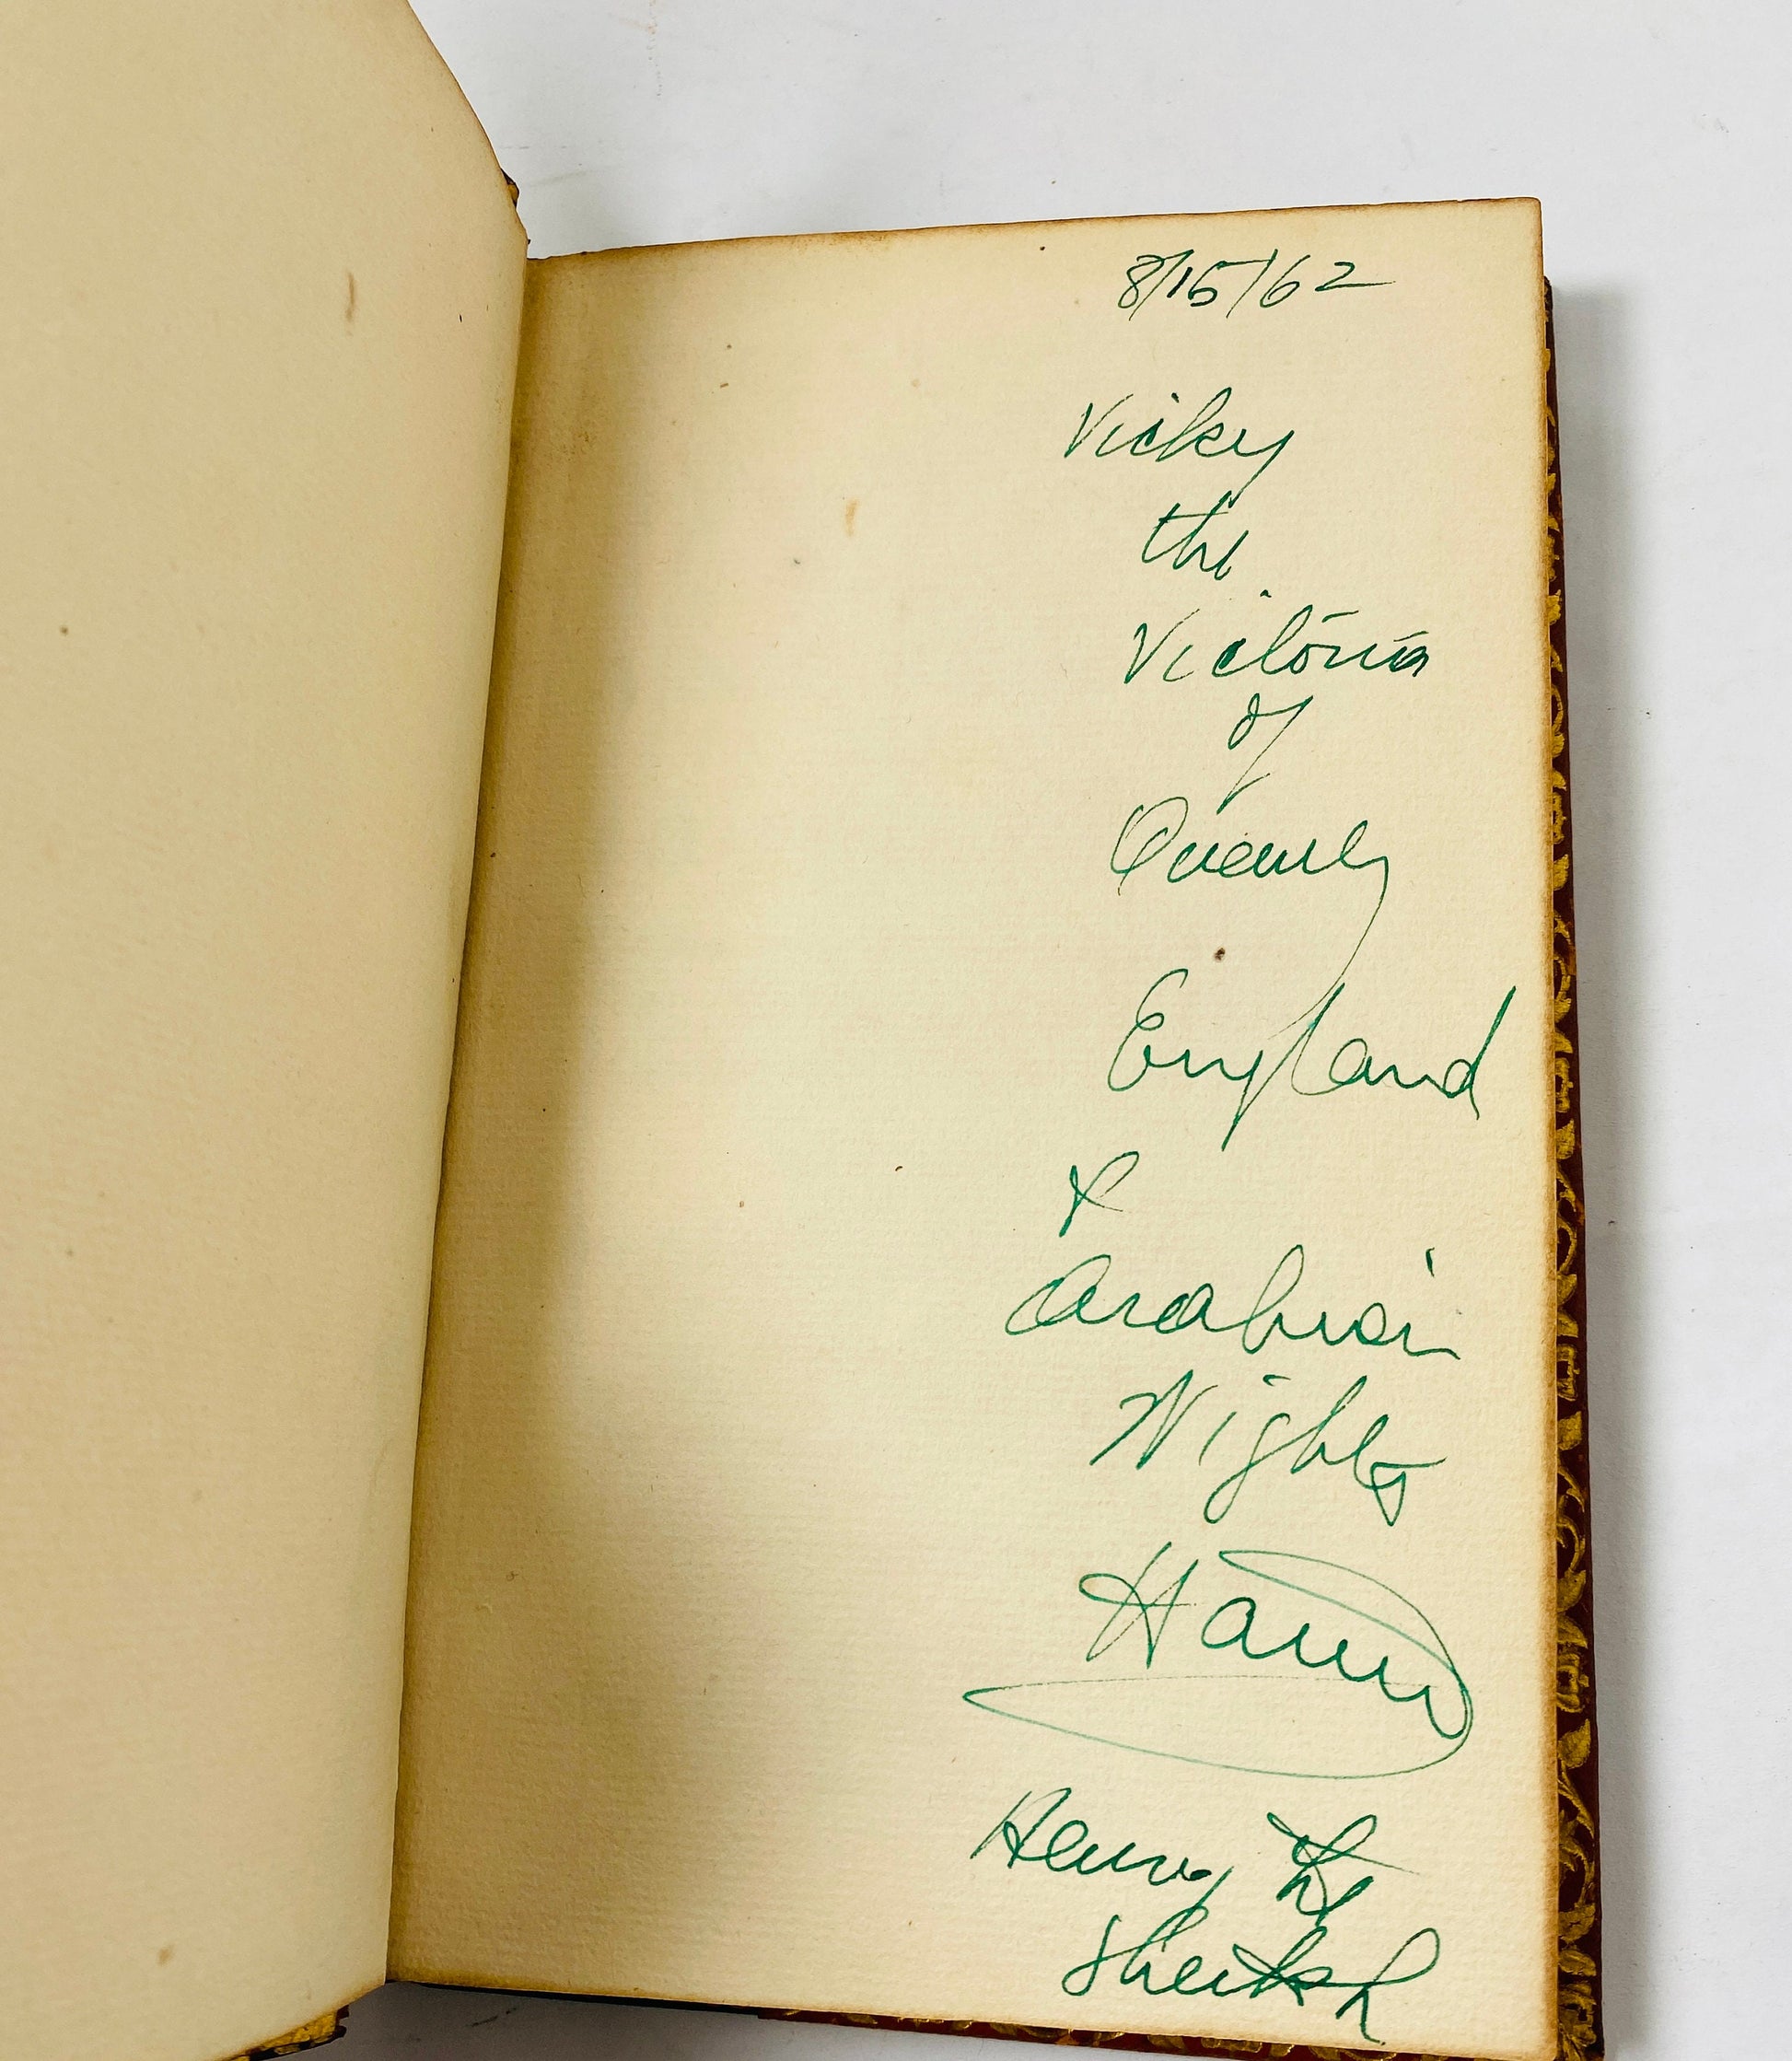 8/15/62
Vicky
the
Victoria
of
Queenly
England
&
Arabian
Nights
Henry the
Sheikh